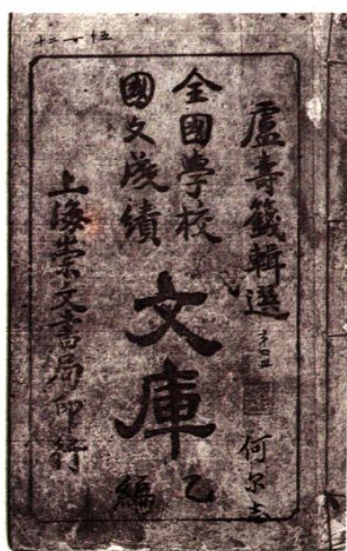 盧壽籛輯選
全國學校
國文成績
文庫
乙編
上海崇文書局印行